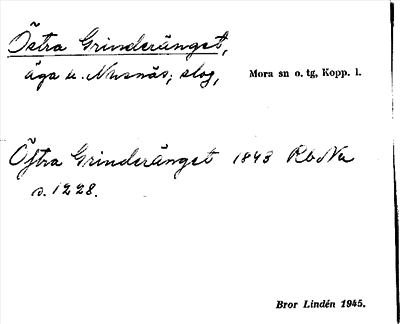 Östra Grinderänget,
äga u. Nusnäs; slog, Mora sn o. tg, Kopp. l.
Öftra Grinderänget 1843 Rb Na
s. 1228.
Bror Lindén 1945.